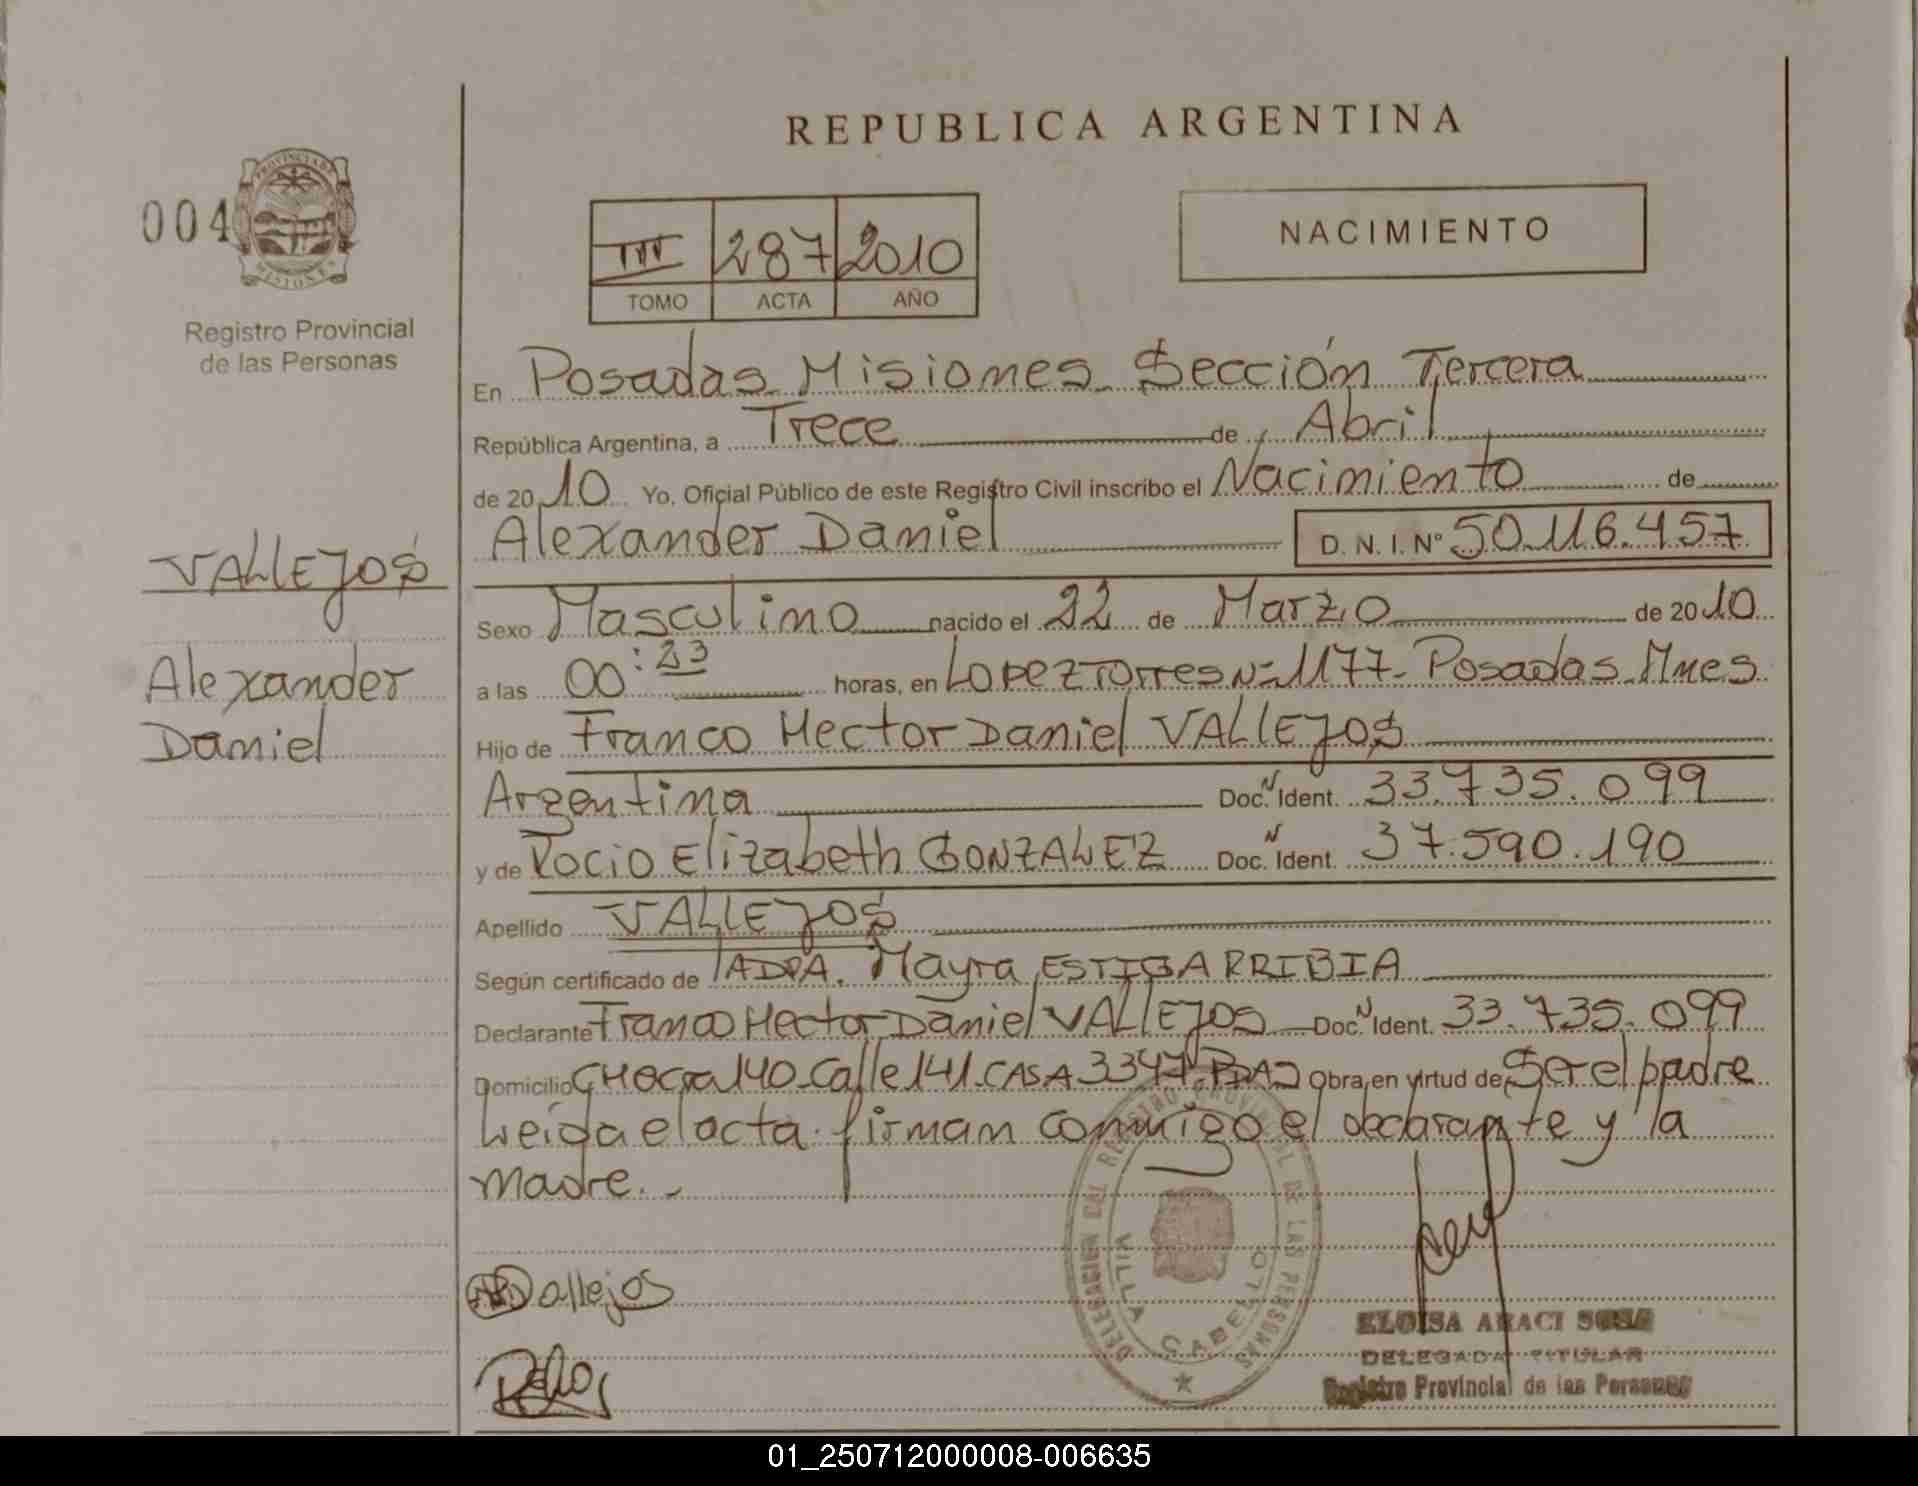 REPUBLICA ARGENTINA
004
PROVINCIA DE MISIONES
Registro Provincial
de las Personas
III 287 2010
TOMO ACTA AÑO
NACIMIENTO
En Posadas Misiones Sección Tercera
República Argentina, a Trece de Abril
de 2010 Yo, Oficial Público de este Registro Civil inscribo el Nacimiento de
Alexander Daniel D. N. I. Nº 50.116.457
VALLEJOS
Alexander
Daniel
Sexo Masculino nacido el 22 de Marzo de 2010
a las 00:23 horas, en Lopez Torres Nº 1177 - Posadas Mnes
Hijo de Franco Hector Daniel VALLEJOS
Argentina Doc. N Ident. 33.735.099
y de Rocio Elizabeth GONZALEZ Doc. N Ident. 37.590.190
Apellido VALLEJOS
Según certificado de Mayra ESTIGARRIBIA
Declarante Franco Hector Daniel VALLEJOS Doc. N Ident. 33.735.099
Domicilio CHacra 140 Calle 141 CASA 3347 Obra en virtud de Ser el padre
Leída el acta firman conmigo el declarante y la
madre.
Vallejos
DELEGACION DEL REGISTRO PROVINCIAL DE LAS PERSONAS
VILLA CABELLO
ELOISA ARACI SOSA
DELEGADA TITULAR
Registro Provincial de las Personas
01_250712000008-006635